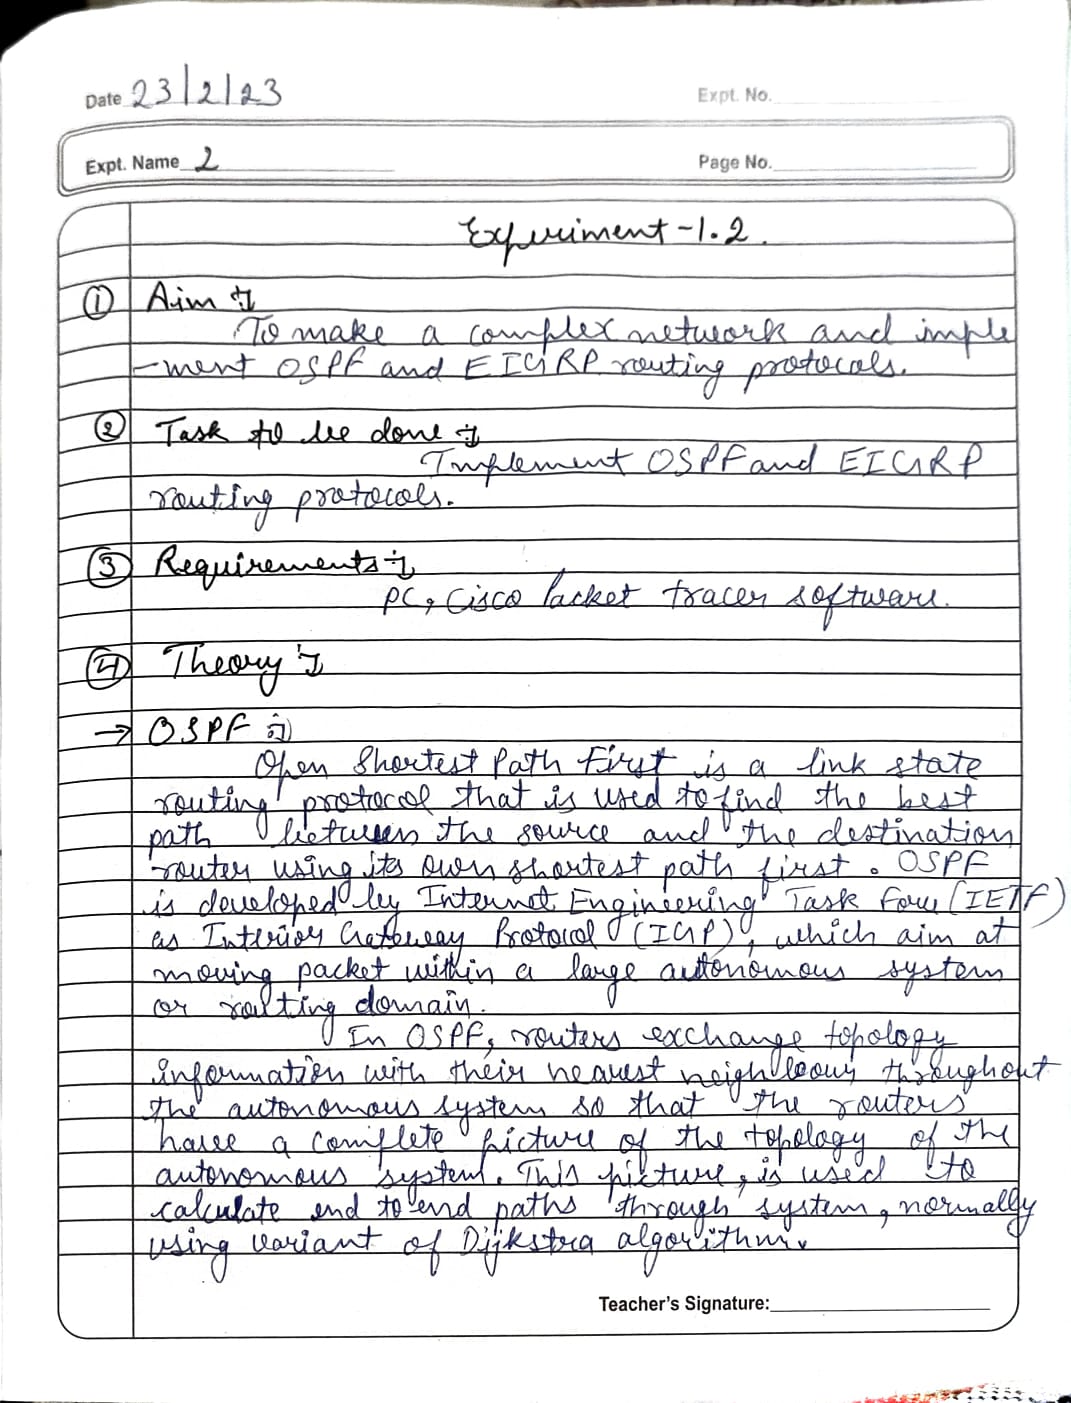 Date 23/2/23
Expt. No.
Expt. Name 2
Page No.
Experiment-1.2.
① Aim :-
To make a complex network and imple
-ment OSPF and EIGRP routing protocols.
② Task to be done :-
Implement OSPF and EIGRP
routing protocols.
③ Requirements :-
PC, Cisco Packet tracer software.
④ Theory :-
→ OSPF :-
Open Shortest Path First is a link state
routing protocol that is used to find the best
path between the source and the destination
router using its own shortest path first. OSPF
is developed by Internet Engineering Task Force (IETF)
as Interior Gateway Protocol (IGP), which aim at
moving packet within a large autonomous system
or routing domain.
In OSPF, routers exchange topology
information with their nearest neighbours throughout
the autonomous system so that the routers
have a complete picture of the topology of the
autonomous system. This picture, is used to
calculate end to end paths through system, normally
using variant of Dijkstra algorithm.
Teacher's Signature: